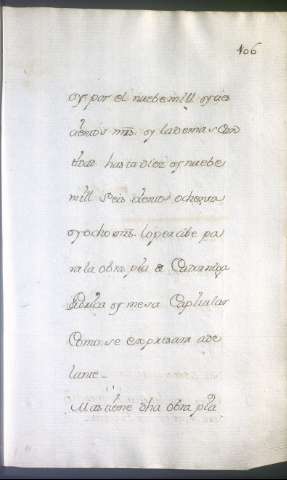 106
y por el nuebe mill y seis
cientos mrs. y la demas Can
tidad hasta diez y nuebe
mill seis cientos ochenta
y ocho mrs. lo percibe pa
ra la obra pia de
fabrica y mesa Capitular
Como se expresara ade
lante
Mas tiene dha obra pia